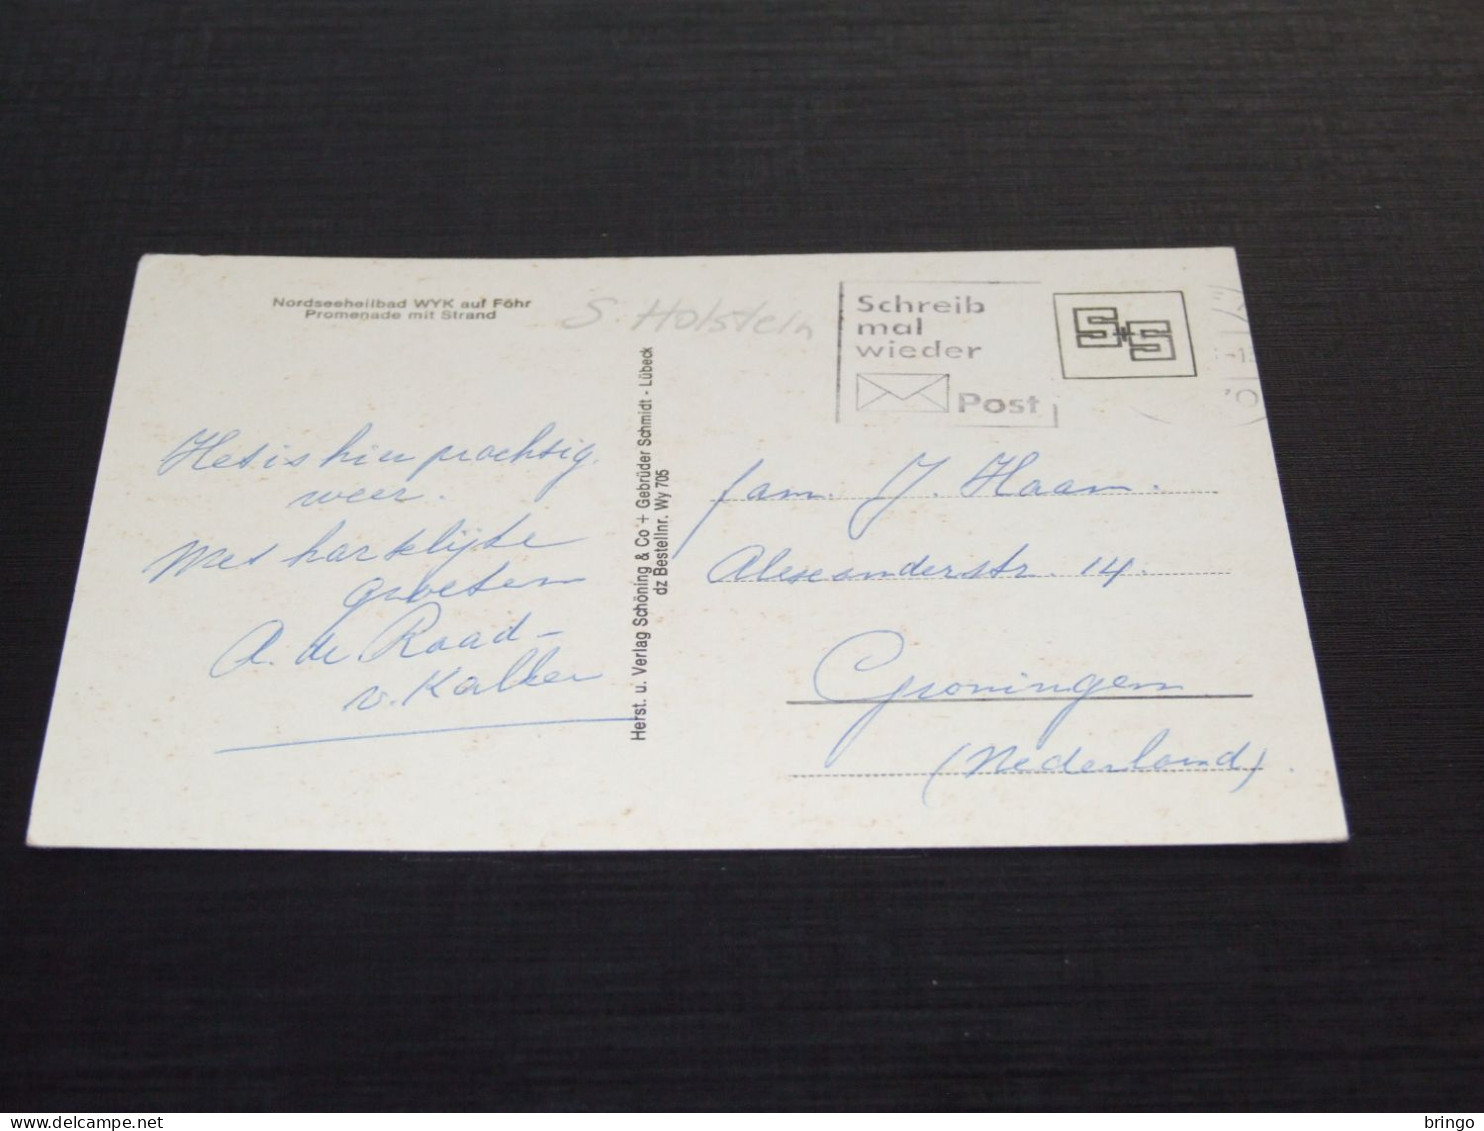 Nordseeheilbad WYK auf Föhr
Promenade mit Strand
S. Holstein
Schreib
mal
wieder
Post
S+S
Het is hier prachtig
weer.
Met hartelijke
groeten
A. de Raad-
v. Kalker
Herst. u. Verlag Schöning & Co + Gebrüder Schmidt - Lübeck
dz Bestellnr. Wy 705
fam. J. Haan.
Alexanderstr. 14.
Groningen
(Nederland).
bringo